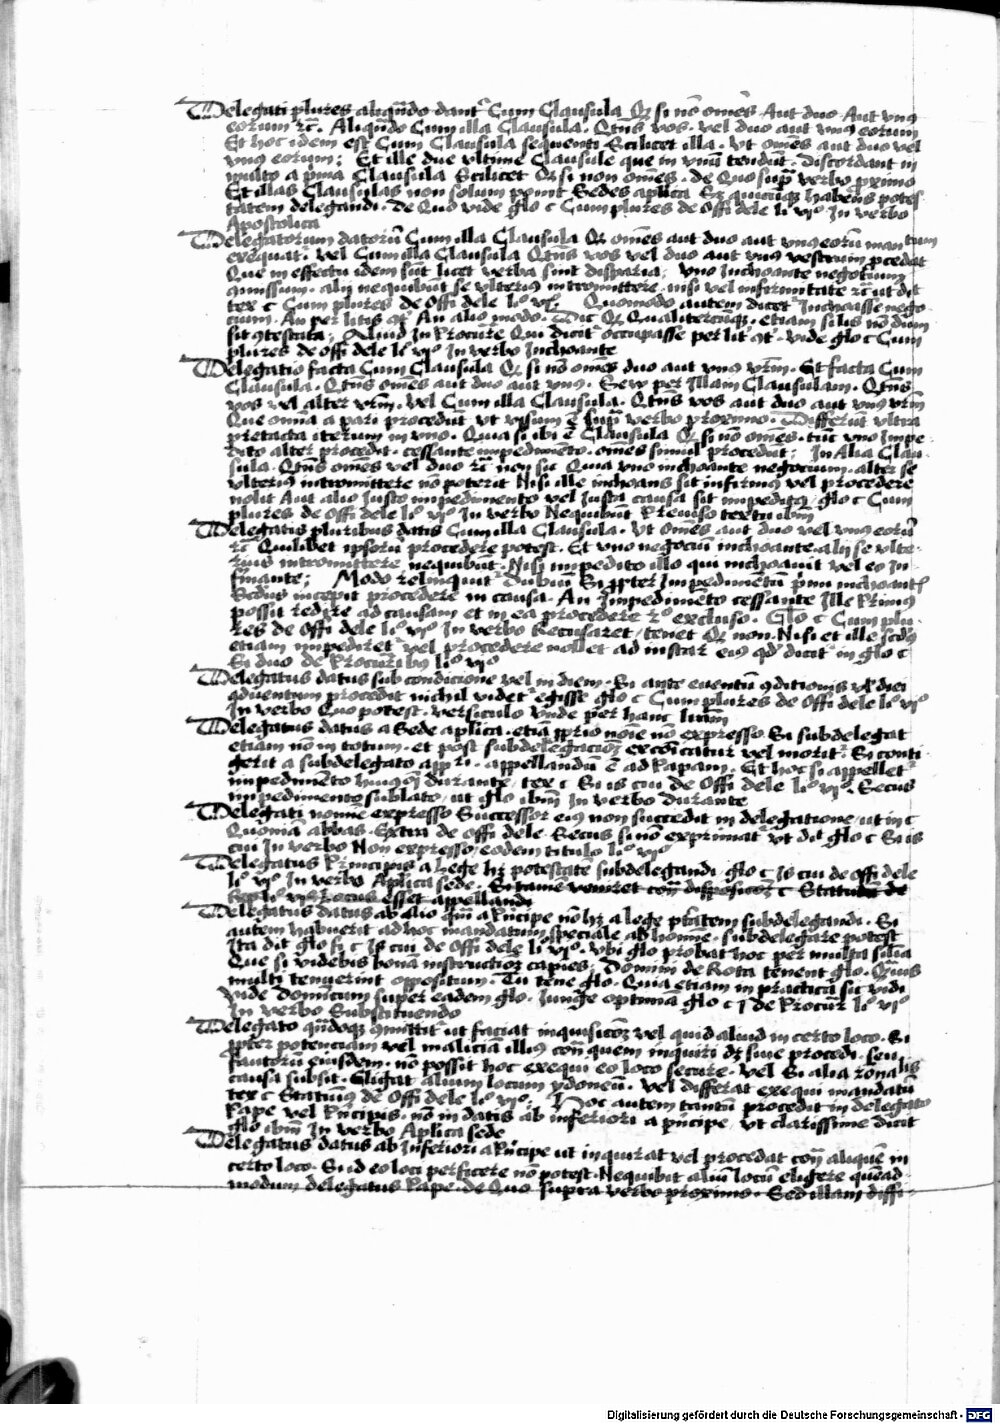 Delegati plures aliqñdo dant᷑ Cum Clausula Qz si nõ omẽs Aut duo Aut vnꝰ
eorum ꝛc̃. Aliqñdo Cum illa Clausula. Qtñs vos. vel duo aut vnꝰ eorum
Et hoc idem est Cum Clausula sequenti Scilicet illa. Vt omẽs aut duo vel
vnꝰ eorum; Et ille due vltime Clausule que in vnũ tendũt. discordant in
multo a p̃ma Clausula Scilicet Qz si non omẽs. de Quo supͣ verbo pximo
Et illas Clausulas non solum ponit Sedes aplica Sz quicũqz habẽns potes
tatem delegandi. de Quo vide glo c Cum plures de offi dele liº viº In verbo
Apostolica
Delegatorum datorũ Cum illa Clausula Qz omẽs aut duo aut vnꝰ eorũ mandatum
exequat᷑. vel Cum illa Clausula Qtñs vos vel duo aut vnꝰ vestrum pcedat
Que in effectu idem sũt licet verba sint disparia; vno Inchoante negotium
missum. alij nequibũt se vlteriꝰ intromittere. nisi vel infirmitate ꝛc̃ ut dit
tex c Cum plures de offi dele liº viº. Quomodo autem dicet᷑ Inchoasse nego
cium. An per litis ꝯt᷑ An alio modo. Dic Qz Qualitercũqz. etiam si lis nõ dum
sit ꝯtestata; Aliud In Procure Qui dicit᷑ occupasse per lit᷑ ꝯt᷑. vide glo c Cum
plures de offi dele liº viº In verbo Inchoante
Delegatio facta Cum Clausula Qz si nõ omẽs duo aut vnꝰ vrm̃. Et facta Cum
Clausula. Qtñs omẽs aut duo aut vnꝰ. Sew per Illam Clausulam. Qtñs
vos vel alter vrm̃. Vel Cum illa Clausula. Qtñs vos aut duo aut vnꝰ vrm̃
Que omĩa a pari procedũt vt visum ẽ supͣ verbo proximo. Differũt vltra
pretacta iterum in vno. Quia si ibi ẽ Clausula Qz si nõ omẽs. tũc vno Impe
dito alter procedit. cessante impedimẽto. omẽs simul procedũt; In Alia Clau
sula. Qtñs omẽs vel duo ꝛc̃ non sic Quia vno inchoante negocium. alter se
vlteriꝰ intromittere nõ poterit Nisi ille inchoans sit infirmꝰ vel procedere
nolit Aut alio Iusto impedimento vel Iusta causa sit impeditꝰ. glo c Cum
plures de offi dele liº viº In verbo Nequibũt Premiso textu ibm̃
Delegatis pluribus datis Cum illa Clausula. Vt omẽs aut duo vel vnꝰ eorũ
ꝛc̃ Quilibet ipsorũ procedere potest. Et vno negociũ inchoante. alij se vlte
rius intromittere nequibũt. Nisi impedito illo qui inchoauit vel eo In
firmante; Modo relinquit᷑ dubiũ Si ꝓpter Impedimẽtũ pͥmi inchoant᷑
Scdus incepit procedere in causa. An Impedimẽto cessante Ille Primꝰ
possit redire ad causam et in ea procedere 2º excluso. Glo c Cum plu
res de offi dele liº viº In verbo Recusaret. tenet Qz non. Nisi et ille scdꝰ
etiam impediret᷑ vel procedere nollet ad instar eiꝰ qd̃ dicit᷑ in glo c
Si duo de Procurib; liº viº
Delegatus datus sub condicione vel in diem. Si ante euentũ ꝯditionis vl̃ diei
aduentum procedit nichil videt᷑ egisse glo c Cum plures de offi dele liº viº
In verbo Quo potest. versiculo vnde per hanc lram̃
Delegatus datus a Sede aplica. etiã ꝓprio noĩe nõ expresso Si subdelegat
etiam nõ in totum. et post subdelegacioz excoicatur vel morit᷑. Si conti
gerit a subdelegato appri. appellandũ ẽ ad Papam. Et hoc si appellet᷑
impedimẽto huiꝰmõi durante, tex c Si is cui de offi dele liº viº. Secus
impedimento sublato, ut glo ibm̃ In verbo durante
Delegati nomine expresso Successor eiꝰ non succedit in delegatione, ut in c
Quoniã abbas. extra de offi dele. Secus si nõ exprimat᷑ vt dit glo c Si is
cui In verbo Non expresso, eodem titulo liº viº
Delegatus Principis a Lege hz potestatẽ subdelegandi. glo c Is cui de offi dele
liº viº In verbo Aplica sede.
Delegatus datus ab alio qm̃ a Principe nõ hz a lege ptãtem subdelegandi. Si
autem habuerit ad hoc mandatum speciale ab homĩe. subdelegare potest
Ita dit glo fi c Is cui de offi dele liº viº. Vbi glo probat hoc per multa silĩa
Que si videbis bonã instructioz capies. Domini de Rota tenent glo. Quis
multi tenuerint oppositum. Tu tene glo. Quia etiam in practica sic vidi
vide dominicum super eadem glo. Iunge optima glo c 1 de Procur̃ liº viº
In verbo Substituendo
Delegato qñdoqz ꝯmittit᷑ ut faciat inquisicõz vel quid aliud in certo loco. Si
ꝓpter potenciam vel maliciã illiꝰ cont̃ quem inquiri dz siue procedi. seu
fautorũ eiusdem. nõ possit hoc exequi eo loco secure. vel Si alia ronalis
causa subsit. Eligat alium locum ydoneũ. vel differat exequi mandatũ
tex c Statutũ de offi dele liº viº. Hoc autem tantũ procedit in delegato
Pape vel Principis. nõ in datis ab inferiori a principe, vt clarissime dicit
glo ibm̃ In verbo Aplica sede
Delegatus datus ab Inferiori a Principe ut inquirat vel procedat cont̃ aliquẽ in
certo loco. Si id eo loci perficere nõ potest. Nequibit aliũ locũ eligere quẽad
modum delegatus Pape. de Quo supra verbo proximo. Sed illam diffi
Digitalisierung gefördert durch die Deutsche Forschungsgemeinschaft - DFG